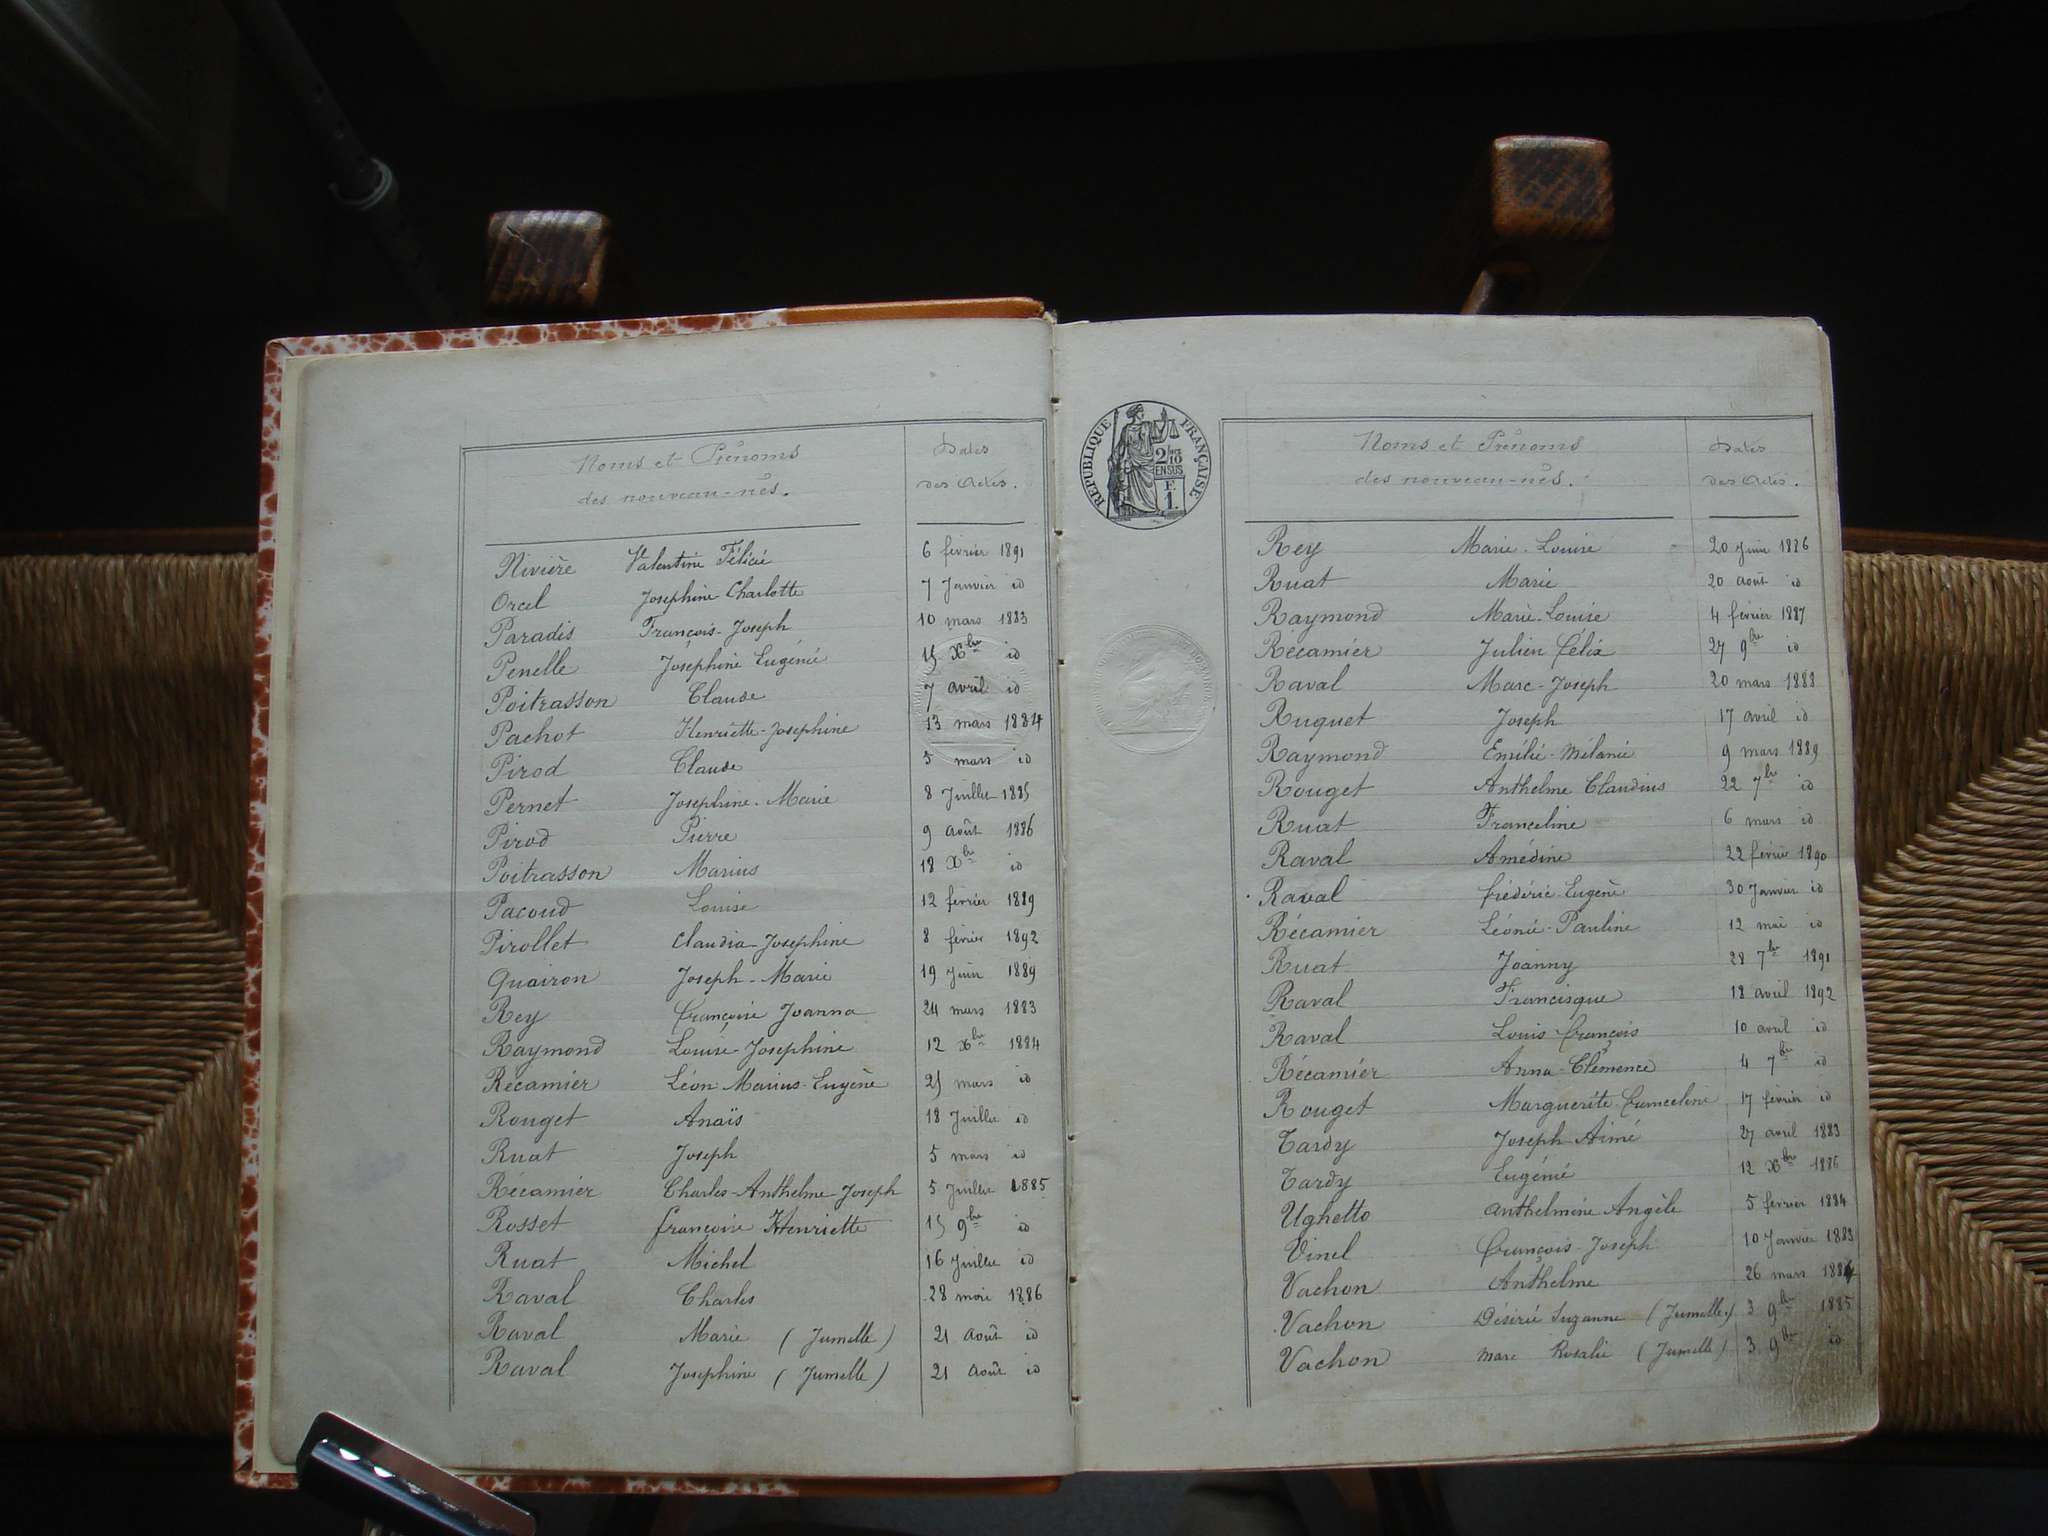 Noms et Prénoms
des nouveau-nés.
Dates
des Actes.
Nivière Valentine Félicie 6 février 1891
Orcel Joséphine Charlotte 7 Janvier id
Paradis François-Joseph 10 mars 1883
Penelle Joséphine Eugénie 15 Xbre id
Poitrasson Claude 7 avril id
Pachot Henriette-Joséphine 13 mars 1884
Pirod Claude 5 mars id
Pernet Joséphine-Marie 8 Juillet 1885
Pirod Pierre 9 Août 1886
Poitrasson Marius 18 Xbre id
Pacoud Louise 12 février 1889
Pirollet Claudia-Joséphine 8 février 1892
Quairon Joseph-Marie 19 Juin 1889
Rey Françoise Joanna 24 mars 1883
Raymond Louise-Joséphine 12 Xbre 1884
Récamier Léon Marius-Eugène 25 mars id
Rouget Anaïs 18 Juillet id
Ruat Joseph 5 mars id
Récamier Charles-Anthelme-Joseph 5 Juillet 1885
Rosset françoise Henriette 15 9bre id
Ruat Michel 16 Juillet id
Raval Charles 28 mai 1886
Raval Marie (Jumelle) 21 Août id
Raval Joséphine (Jumelle) 21 Août id
RÉPUBLIQUE FRANÇAISE
2/10
EN SUS
F.
1.
Noms et Prénoms
des nouveau-nés.
Dates
des Actes.
Rey Marie-Louise 20 Juin 1886
Ruat Marie 20 août id
Raymond Marie-Louise 4 février 1887
Récamier Julien Félix 27 9bre id
Raval Marc-Joseph 20 mars 1888
Ruguet Joseph 17 avril id
Raymond Emélie-Mélanie 9 mars 1889
Rouget Anthelme Claudius 22 7bre id
Ruat Franceline 6 mars id
Raval Amédine 22 février 1890
Raval frédéric-Eugène 30 Janvier id
Récamier Léonie-Pauline 12 mai id
Ruat Joanny 28 7bre 1891
Raval Francisque 18 avril 1892
Raval Louis-François 10 avril id
Récamier Anna-Clémence 4 7bre id
Rouget Marguerite 17 février id
Tardy Joseph Aimé 27 avril 1883
Tardy Eugénie 12 Xbre 1886
Ughetto Anthelmine Angèle 5 février 1884
Vinel François-Joseph 10 Janvier 1883
Vachon Anthelme 26 mars 1884
Vachon Désirée Suzanne (Jumelle) 3 9bre 1885
Vachon Marie Rosalie (Jumelle) 3 9bre id